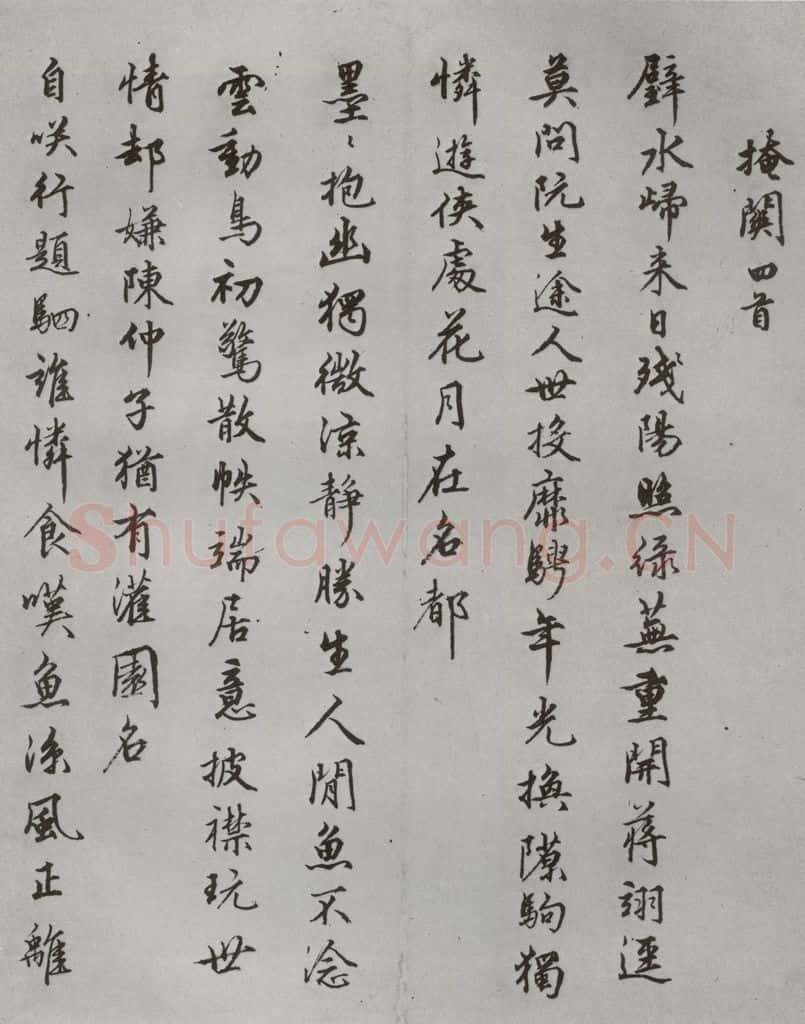 掩關四首
璧水歸来日殘陽照緑蕪重開蔣詡逕
莫問阮生途人世投麋驂年光換隙駒獨
憐遊俠處花月在名都
墨〻抱幽獨微涼静勝生人閒魚不淰
雲動鳥初驚散帙端居意披襟玩世
情却嫌陳仲子猶有灌園名
自咲行題駟誰憐食嘆魚涼風正離
Shufawang.CN